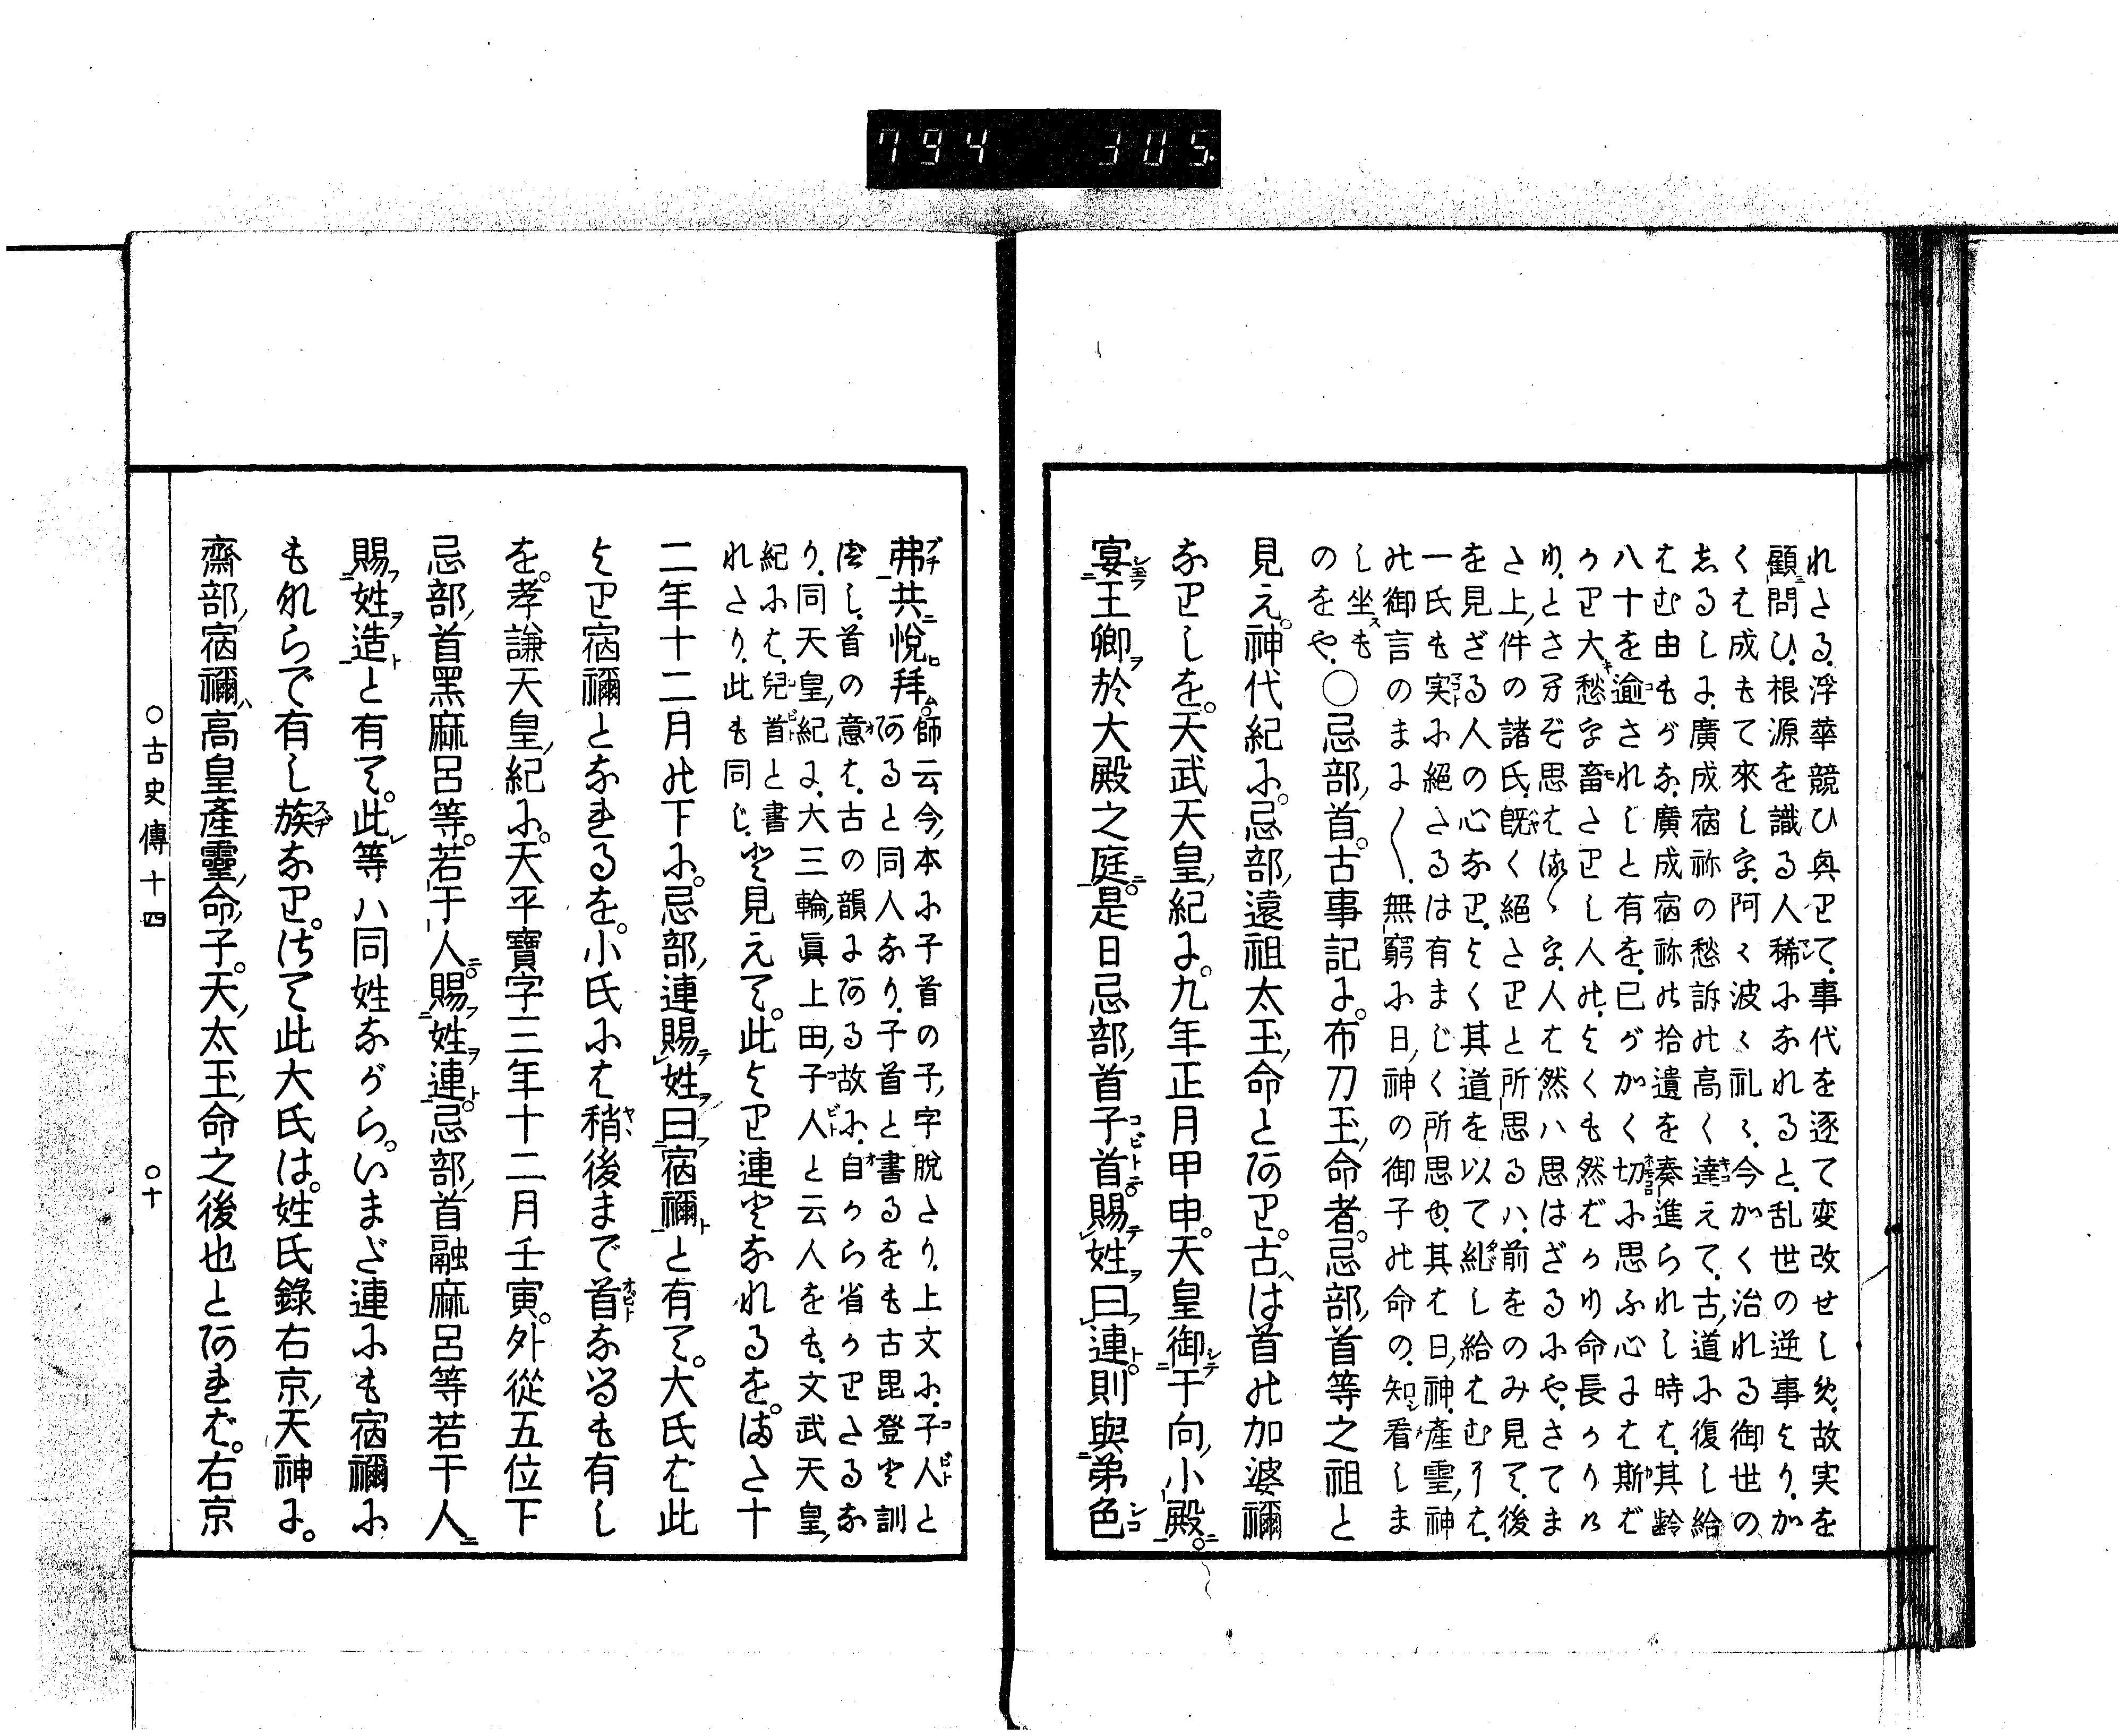 794 305
れさる浮華競ひ輿りて事代を逐て変改せし故実を
顧問ひ根源を識る人稀になれると乱世の逆事よりか
くも成もて來し阿々波々礼々今かく治れる御世の
しるしに廣成宿祢の愁訴の高く達えて古道に復し給
はむ由もがな廣成宿祢の拾遺を奏進られし時は其齡
八十を逾されしと有を已がかく切に思ふ心には斯ば
かり大愁を畜さりし人のよくも然ばかり命長かりけ
りとさへぞ思はるゝを人は然ハ思はざるにやさてま
た上件の諸氏既く絕たりと所思るハ前をのみ見て後
を見ざる人の心なりよく其道を以て糺し給はむには
一氏も実に絕たるは有まじく所思也其は日神產靈神
の御言のまに〳〵無窮に日神の御子の命の知看しま
し坐も
のをや○忌部首古事記に布刀玉命者忌部首等之祖と
見え神代紀に忌部遠祖太玉命とあり古は首の加婆禰
なりしを天武天皇紀に九年正月甲申天皇御于向小殿
宴王卿於大殿之庭是日忌部首子首賜姓曰連則與弟色
弗共悅拜師云今本に子首の子字脫たり上文に子人と
あると同人なり子首と書るをも古毘登と訓
べし首の意は古の韻にある故に自から省かりたるな
り同天皇紀に大三輪眞上田子人と云人をも文武天皇
紀には兒首と書
れたり此も同じと見えて此より連となれるをまた十
二年十二月の下に忌部連賜姓曰宿禰と有て大氏は此
より宿禰となれるを小氏には稍後まで首なるも有し
を孝謙天皇紀に天平寶字三年十二月壬寅外從五位下
忌部首黑麻呂等若干人賜姓連忌部首融麻呂等若干人
賜姓造と有て此等ハ同姓ながらいまだ連にも宿禰に
もならで有し族なりさて此大氏は姓氏錄右京天神に
齋部宿禰高皇產靈命子天太玉命之後也とあれば右京
○古史傳十四 ○十